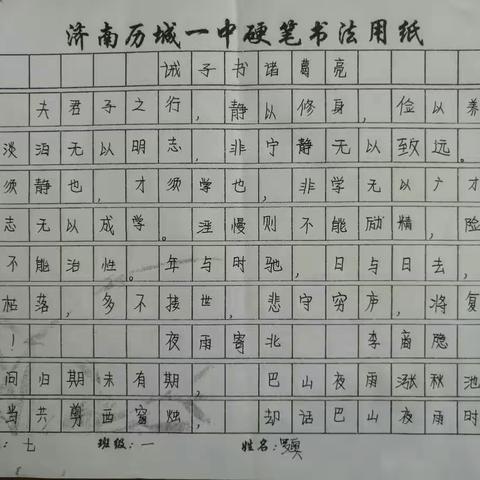 济南历城一中硬笔书法用纸
诫子书诸葛亮
夫君子之行,静以修身,俭以养
淡泊无以明志,非宁静无以致远。
须静也,才须学也,非学无以广才
志无以成学。淫慢则不能励精,险
不能治性。年与时驰,日与日去,
枯落,多不接世,悲守穷庐,将复
!
夜雨寄北 李商隐
问归期未有期,巴山夜雨涨秋池
当共剪西窗烛,却话巴山夜雨时
:七 班级:一 姓名: